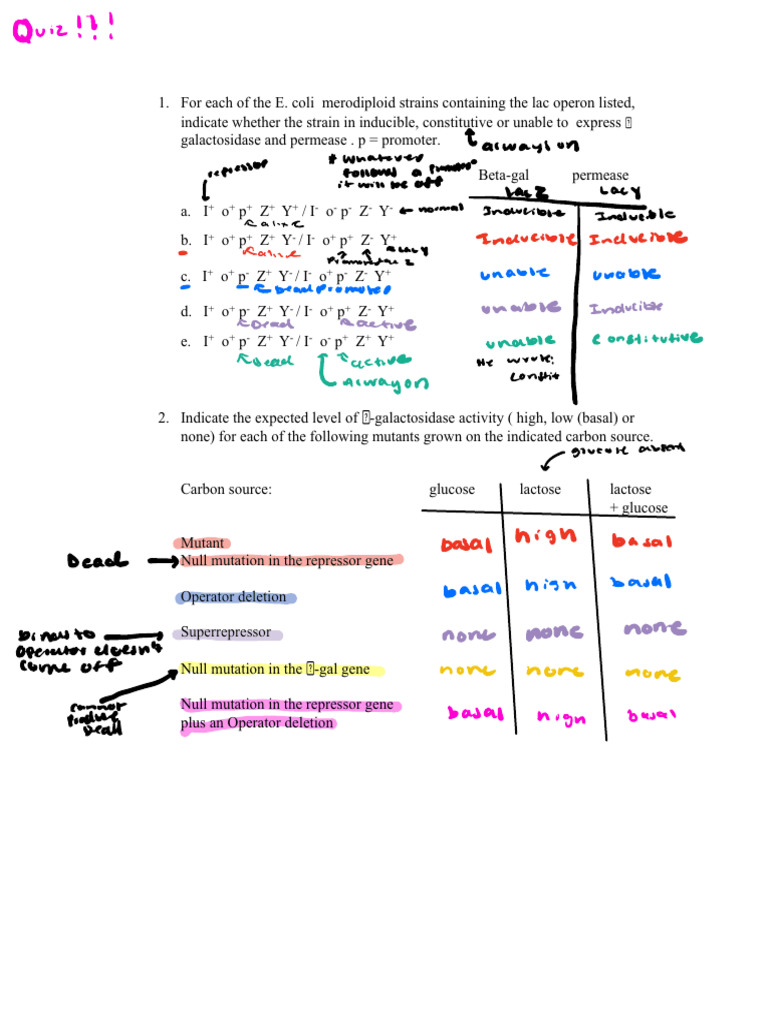 Quiz!?!
1. For each of the E. coli merodiploid strains containing the lac operon listed,
indicate whether the strain in inducible, constitutive or unable to express
galactosidase and permease . p = promoter.
always on
repressor
* whatever
follows a promoter
it will be off
Beta-gal permease
Lac Z Lac Y
a. I⁺ o⁺ p⁺ Z⁺ Y⁺ / I⁻ o⁻ p⁻ Z⁻ Y⁻ ← normal Inducible Inducible
b. I⁺ o⁺ p⁺ Z⁺ Y⁻ / I⁻ o⁺ p⁺ Z⁻ Y⁺ Inducible Inducible
Lac Y
c. I⁺ o⁺ p⁻ Z⁺ Y⁻ / I⁻ o⁺ p⁻ Z⁻ Y⁺ unable unable
dead promoter
d. I⁺ o⁺ p⁻ Z⁺ Y⁻ / I⁻ o⁺ p⁺ Z⁻ Y⁺ unable Inducible
Dead active
e. I⁺ o⁺ p⁻ Z⁺ Y⁻ / I⁻ o⁻ p⁺ Z⁺ Y⁺ unable Constitutive
Dead active
Always on
He wrote:
Constit
2. Indicate the expected level of -galactosidase activity ( high, low (basal) or
none) for each of the following mutants grown on the indicated carbon source.
glucose absent
Carbon source: glucose lactose lactose
+ glucose
Mutant basal high basal
Dead → Null mutation in the repressor gene
Operator deletion basal high basal
binds to
operator doesn't
come off
Superrepressor none none none
Null mutation in the -gal gene none none none
cannot
produce
Null mutation in the repressor gene basal high basal
plus an Operator deletion